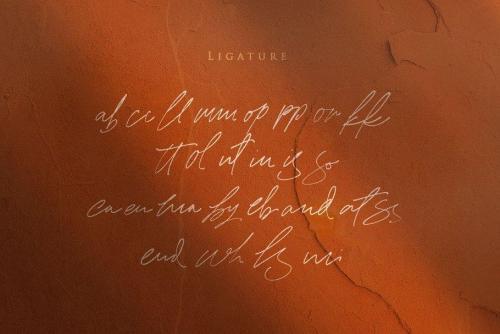 LIGATURE
ab cc ll mm op pp ow kk
tt ol nt in is so
ca en ma by eb and at ss
end wh ls mi